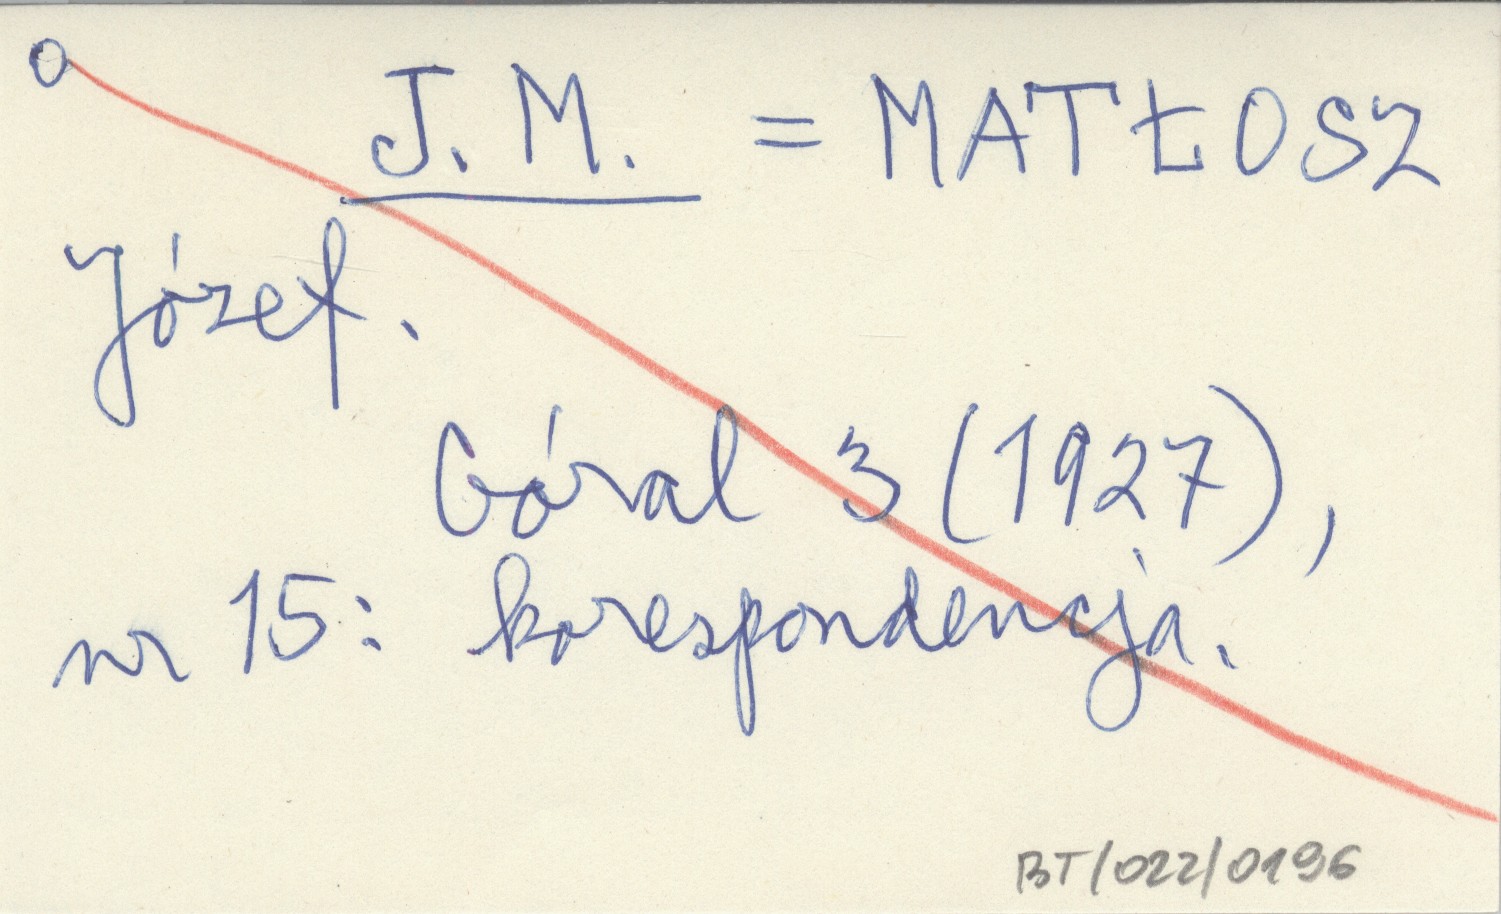 o
J. M. = MATŁOSZ
Józef.
Góral 3 (1927),
nr 15: korespondencja.
BT/022/0196